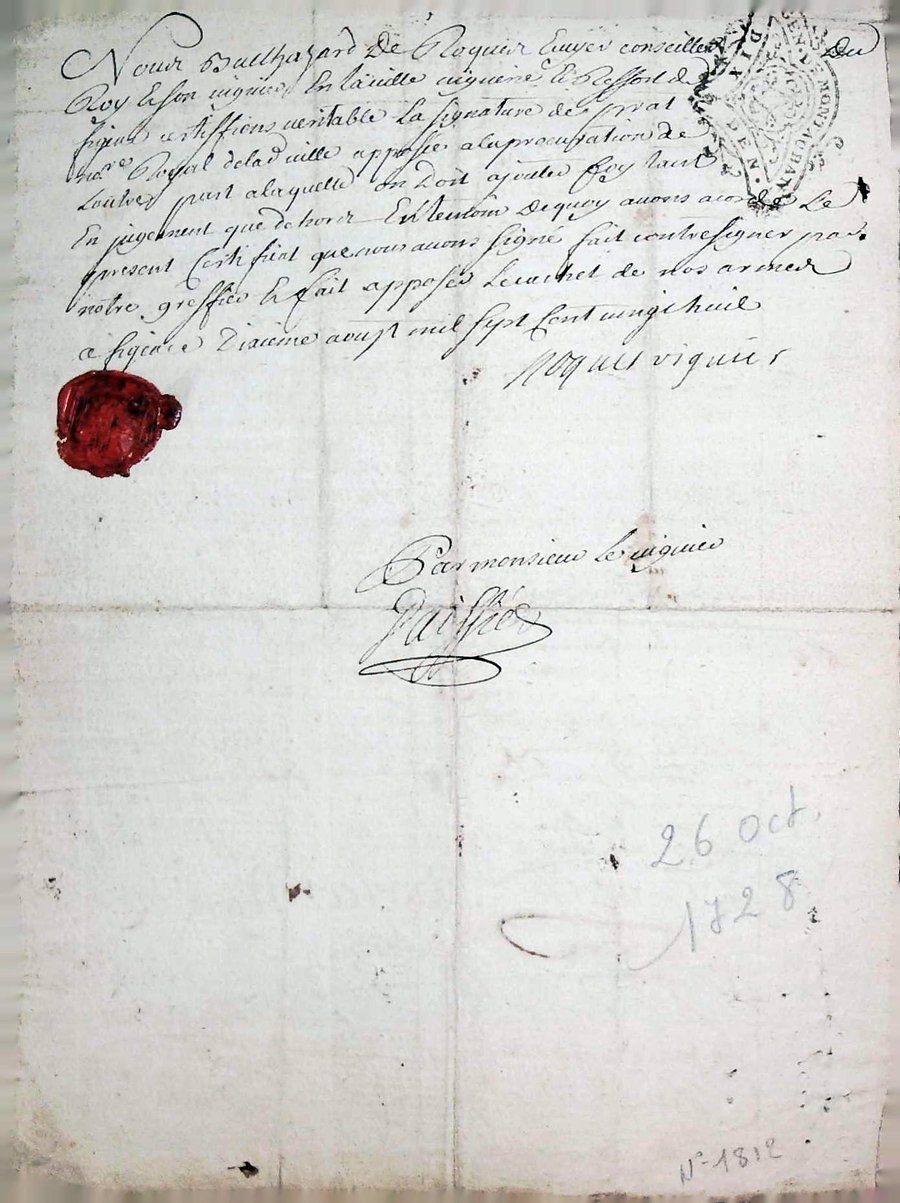 Nous Balthazard de Roquier Ecuyer conseiller Du
Roy Et son viguier En la ville viguerie Et Ressort de
figeac certiffions veritable La signature de prat
nore Royal deladt ville apposée ala procuration de
Lautre part a laquelle on doit ajouter foy tant
En jugement que dehors En temoin dequoy avons acordé Le
present Certifficat que nous avons signé fait contresigner par
notre greffier Et fait apposer Le cachet de nos armes
a figeac ce Dixieme aoust mil sept Cent vingt huit
Roques viguier
Par monsieur Le viguier
26 oct.
1728
N° 1812
GEN. DE MONTAUBAN
DIX DEN.